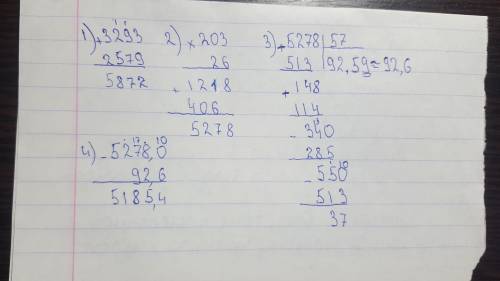 1) +3293
2579
5872
2) ×203
26
+1218
406
5278
3) +5278 | 57
513 | 92,59≈92,6
+148
114
-340
285
-550
513
37
4) -5278,0
92,6
5185,4